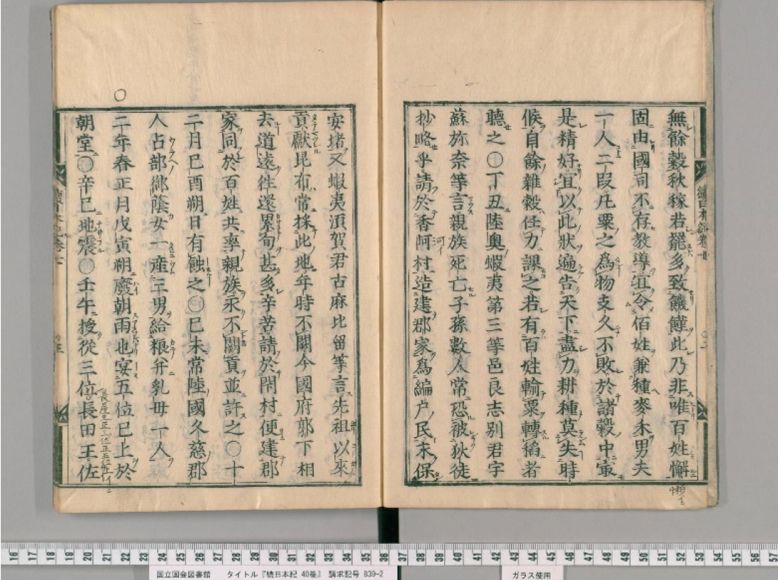 無餘穀秋稼若罷多致饑饉此乃非唯百姓懈
固由國司不存教導宜令佰姓兼種麥禾男夫
一人二段凡粟之爲物支久不敗於諸穀中㝡
是精好宜以此狀遍告天下盡力耕種莫失時
候自餘雜穀任力課之若有百姓輸粟轉稲者
聽之〇丁丑陸奧蝦夷第三等邑良志別君宇
蘇弥奈等言親族死亡子孫數人常恐被狄徒
抄略乎請於香阿村造建郡家爲編戸民永保
安堵又蝦夷湏賀君古麻比留等言先祖以來
貢獻昆布常採此地年時不闕今國府郭下相
去道遠往還累旬甚多辛苦請於閇村便建郡
家同於百姓共率親族永不闕貢並許之〇十
二月己酉朔日有蝕之〇己未常陸國久慈郡
人占部御蔭女一産三男給粮并乳母一人
〇
二年春正月戊寅朔廢朝雨也宴五位已上於
朝堂〇辛巳地震〇壬午授從三位長田王佐
國立国会図書館 タイトル『続日本紀 40巻』 請求記号 839-2
ガラス使用